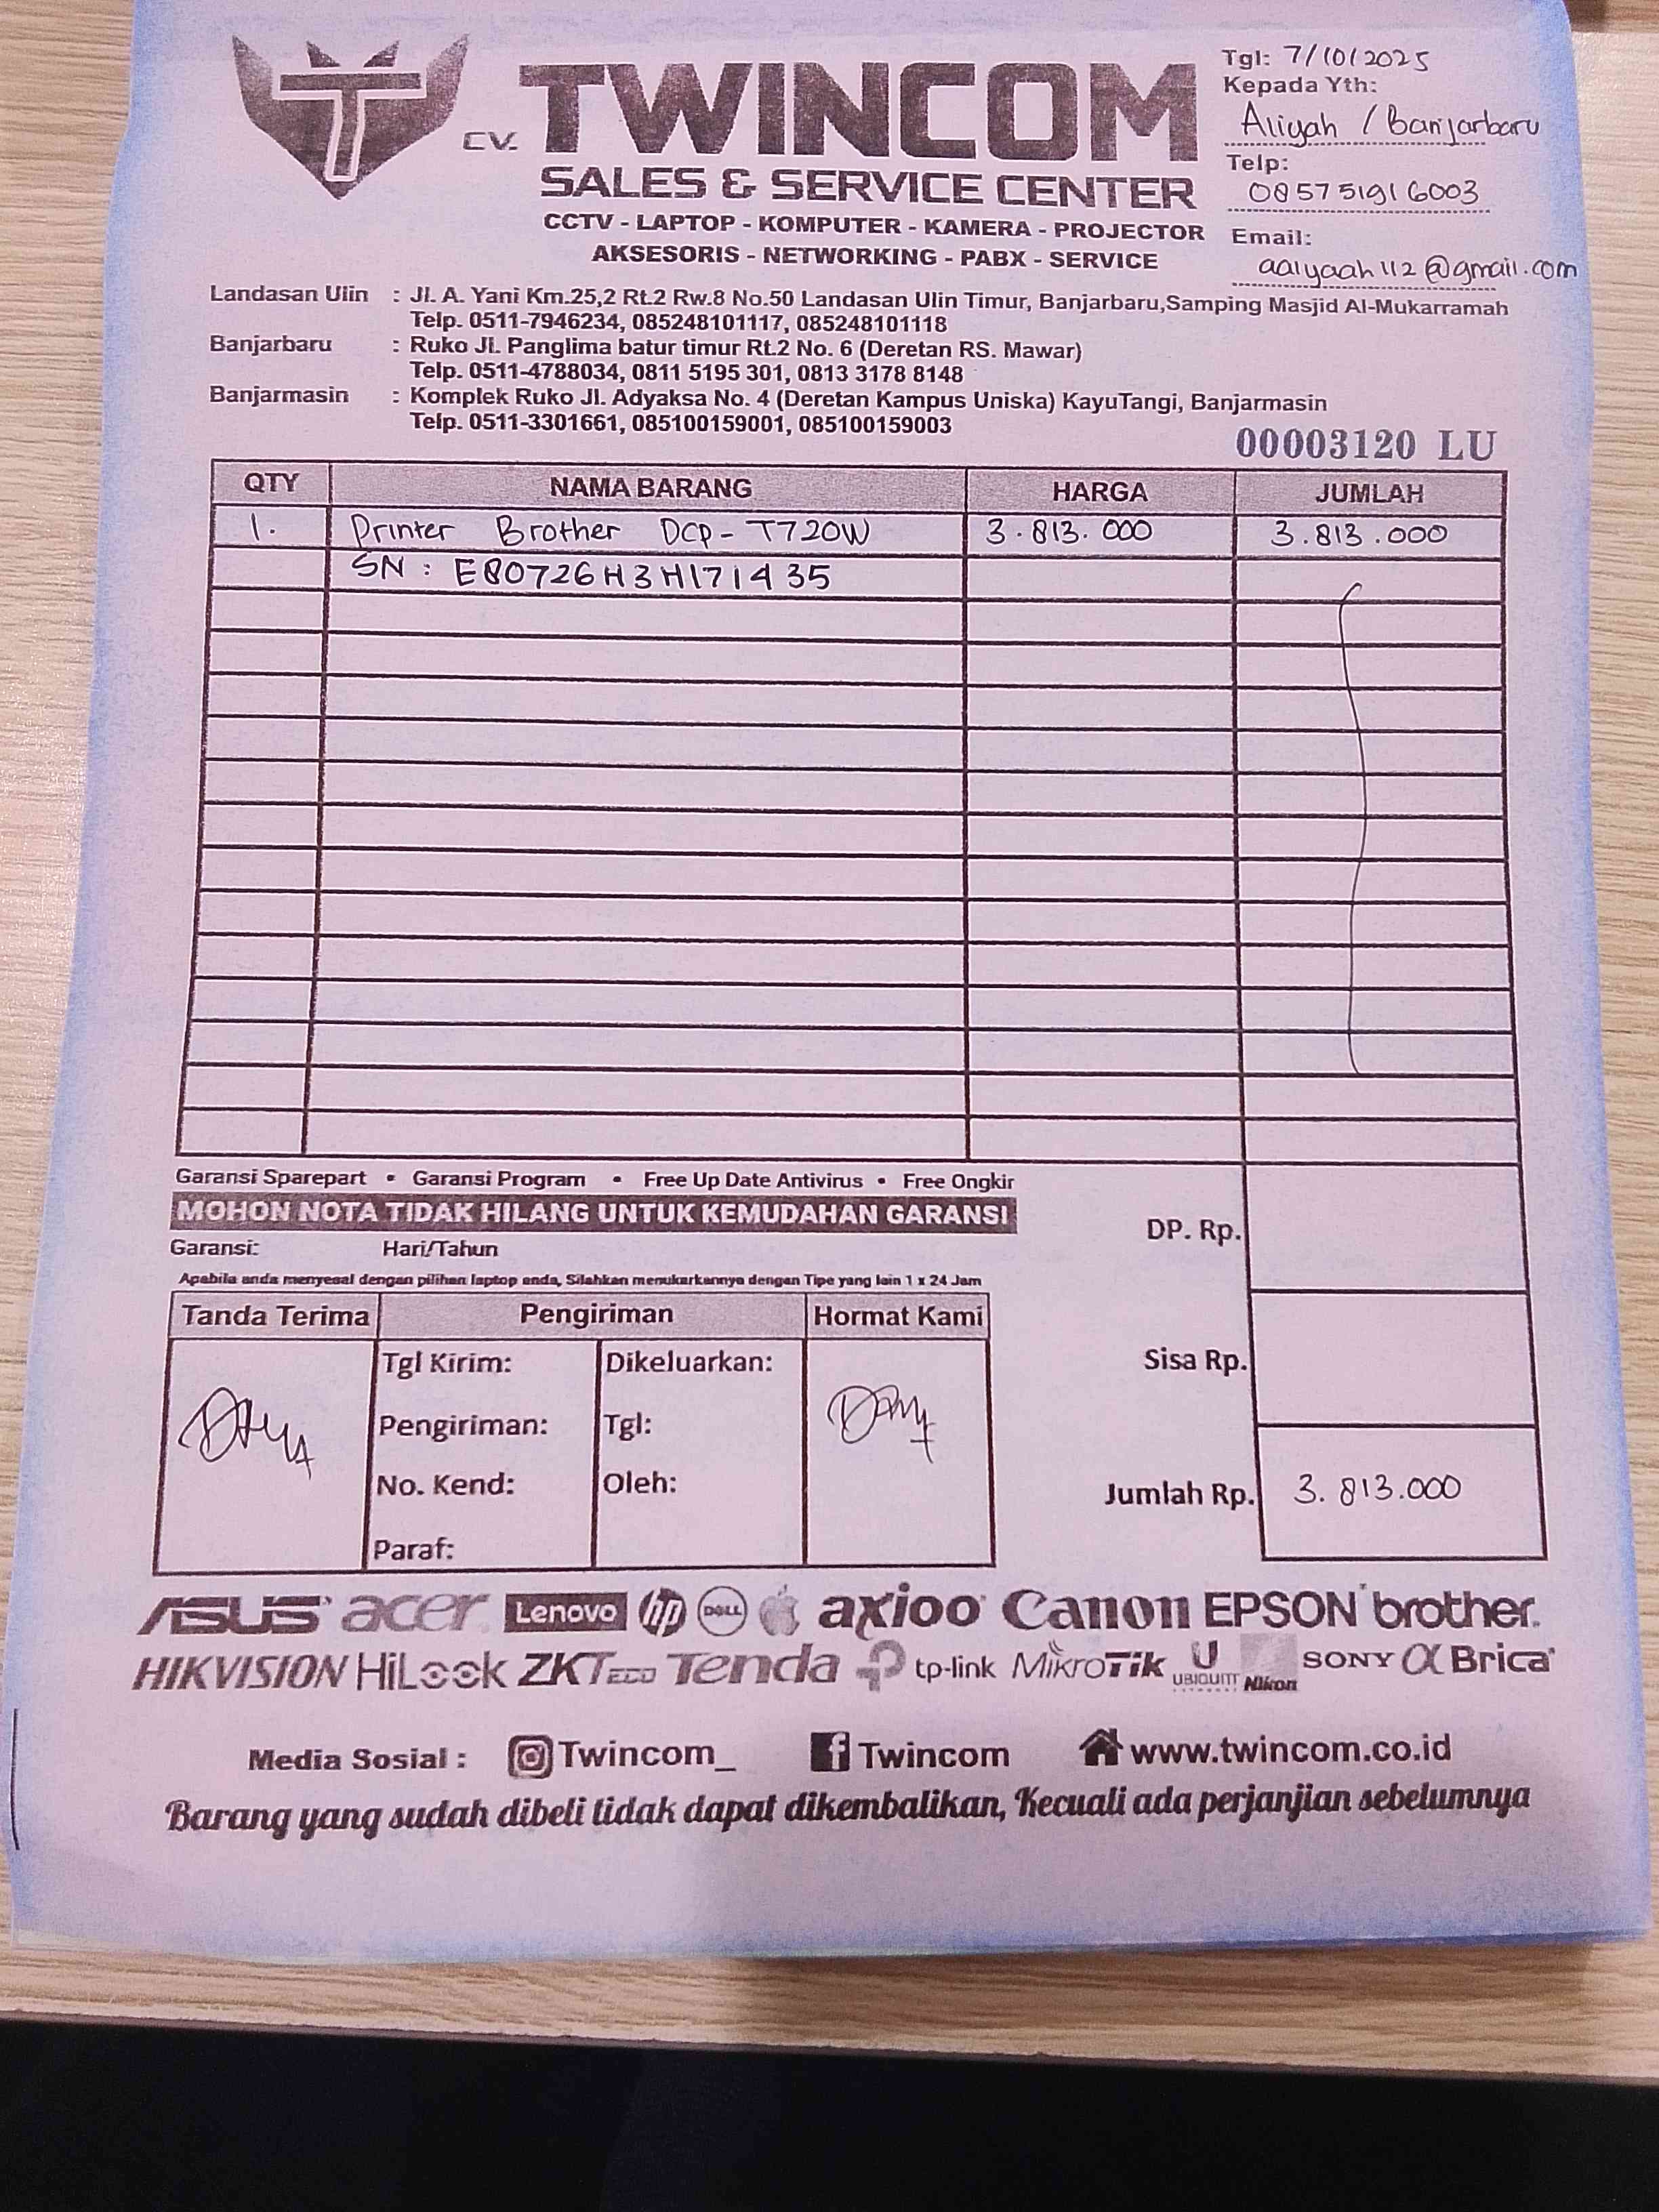 Tgl: 7/10/2025
Kepada Yth:
Aliyah / Banjarbaru
Telp:
085751916003
Email:
aaiyaah112@gmail.com
CV. TWINCOM
SALES & SERVICE CENTER
CCTV - LAPTOP - KOMPUTER - KAMERA - PROJECTOR
AKSESORIS - NETWORKING - PABX - SERVICE
Landasan Ulin : Jl. A. Yani Km.25,2 Rt.2 Rw.8 No.50 Landasan Ulin Timur, Banjarbaru,Samping Masjid Al-Mukarramah
Telp. 0511-7946234, 085248101117, 085248101118
Banjarbaru : Ruko Jl. Panglima batur timur Rt.2 No. 6 (Deretan RS. Mawar)
Telp. 0511-4788034, 0811 5195 301, 0813 3178 8148
Banjarmasin : Komplek Ruko Jl. Adyaksa No. 4 (Deretan Kampus Uniska) KayuTangi, Banjarmasin
Telp. 0511-3301661, 085100159001, 085100159003
00003120 LU
QTY NAMA BARANG HARGA JUMLAH
1. Printer Brother DCP-T720W 3.813.000 3.813.000
SN : E80726H3H171435
Garansi Sparepart • Garansi Program • Free Up Date Antivirus • Free Ongkir
MOHON NOTA TIDAK HILANG UNTUK KEMUDAHAN GARANSI
Garansi: Hari/Tahun
Apabila anda menyesal dengan pilihan laptop anda, Silahkan menukarkannya dengan Tipe yang lain 1 x 24 Jam
DP. Rp.
Sisa Rp.
Jumlah Rp. 3.813.000
Tanda Terima Pengiriman Hormat Kami
Tgl Kirim: Dikeluarkan:
Pengiriman: Tgl:
No. Kend: Oleh:
Paraf:
ASUS acer Lenovo hp DELL axioo Canon EPSON brother.
HIKVISION HiLook ZKTECO Tenda tp-link MikroTik U UBIQUITI Nikon SONY α Brica
Media Sosial : Twincom_ f Twincom www.twincom.co.id
Barang yang sudah dibeli tidak dapat dikembalikan, Kecuali ada perjanjian sebelumnya